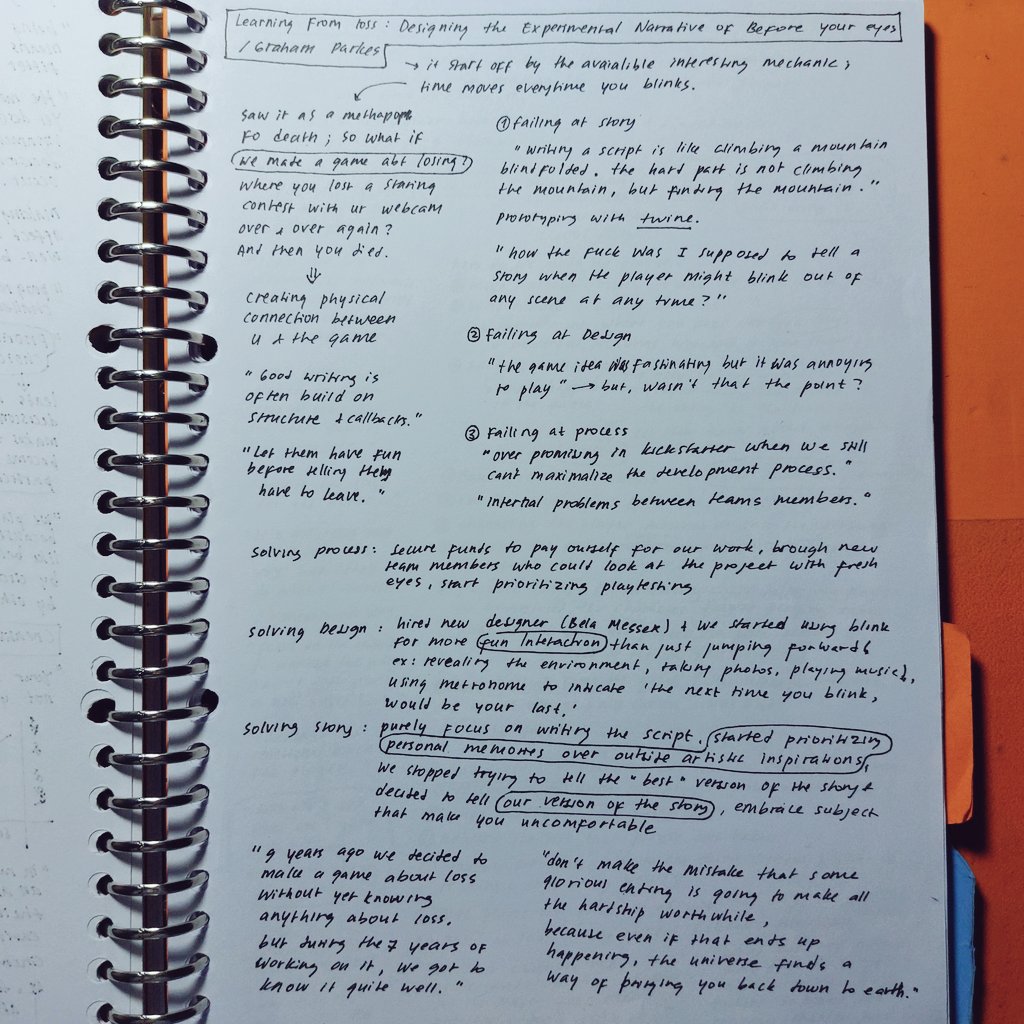 Learning From loss : Designing the Experimental Narrative of Before your eyes
/ Graham Parkes
→ it start off by the avaialible interesting mechanic ;
time moves everytime you blinks.
Saw it as a methapor
to death ; so what if
we made a game abt losing?
where you lost a staring
contest with ur webcam
over & over again?
And then you died.
⇓
creating physical
connection between
u & the game
" Good writing is
often build on
structure & callbacks."
"Let them have fun
before telling they
have to leave. "
① Failing at story
" writing a script is like climbing a mountain
blindfolded. the hard part is not climbing
the mountain, but finding the mountain. "
prototyping with twine.
" how the fuck was I supposed to tell a
story when the player might blink out of
any scene at any time ? "
② Failing at Design
" the game idea was fastinating but it was annoying
to play " → but, wasn't that the point ?
③ Failing at process
"over promising in kickstarter when we still
can't maximalize the development process. "
"internal problems between teams members. "
solving process : secure funds to pay ourself for our work, brough new
team members who could look at the project with fresh
eyes, start prioritizing playtesting
solving Design : hired new designer (Bela Messex) & we started using blink
for more fun Interaction than just jumping forward (
ex : revealing the environment, taking photos, playing music),
using metronome to inticate 'the next time you blink,
would be your last.'
solving story : purely focus on writing the script, started prioritizing
personal memories over outside artistic inspirations,
we stopped trying to tell the "best" version of the story &
decided to tell our version of the story, embrace subject
that make you uncomfortable
" 9 years ago we decided to
make a game about loss
without yet knowing
anything about loss.
but during the 7 years of
working on it, we got to
know it quite well. "
"don't make the mistake that some
glorious ending is going to make all
the hardship worthwhile,
because even if that ends up
happening, the universe finds a
way of bringing you back down to earth."